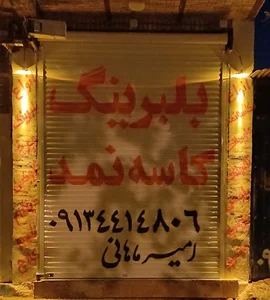 بلبرینگ
کاسه نمد
۰۹۱۳۴۴۱۴۸۰۶
امیر ماهانی